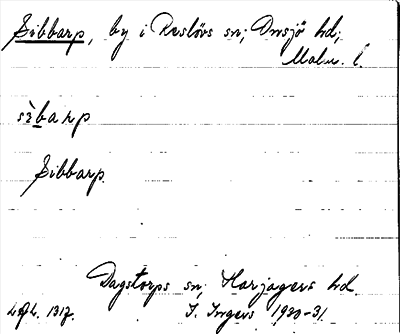 Sibbarp, by i Reslövs sn; Onsjö hd;
Malm. l.
sìbarp
Sibbarp.
Dagstorps sn, Harjagers hd.
I. Ingers 1930-31.